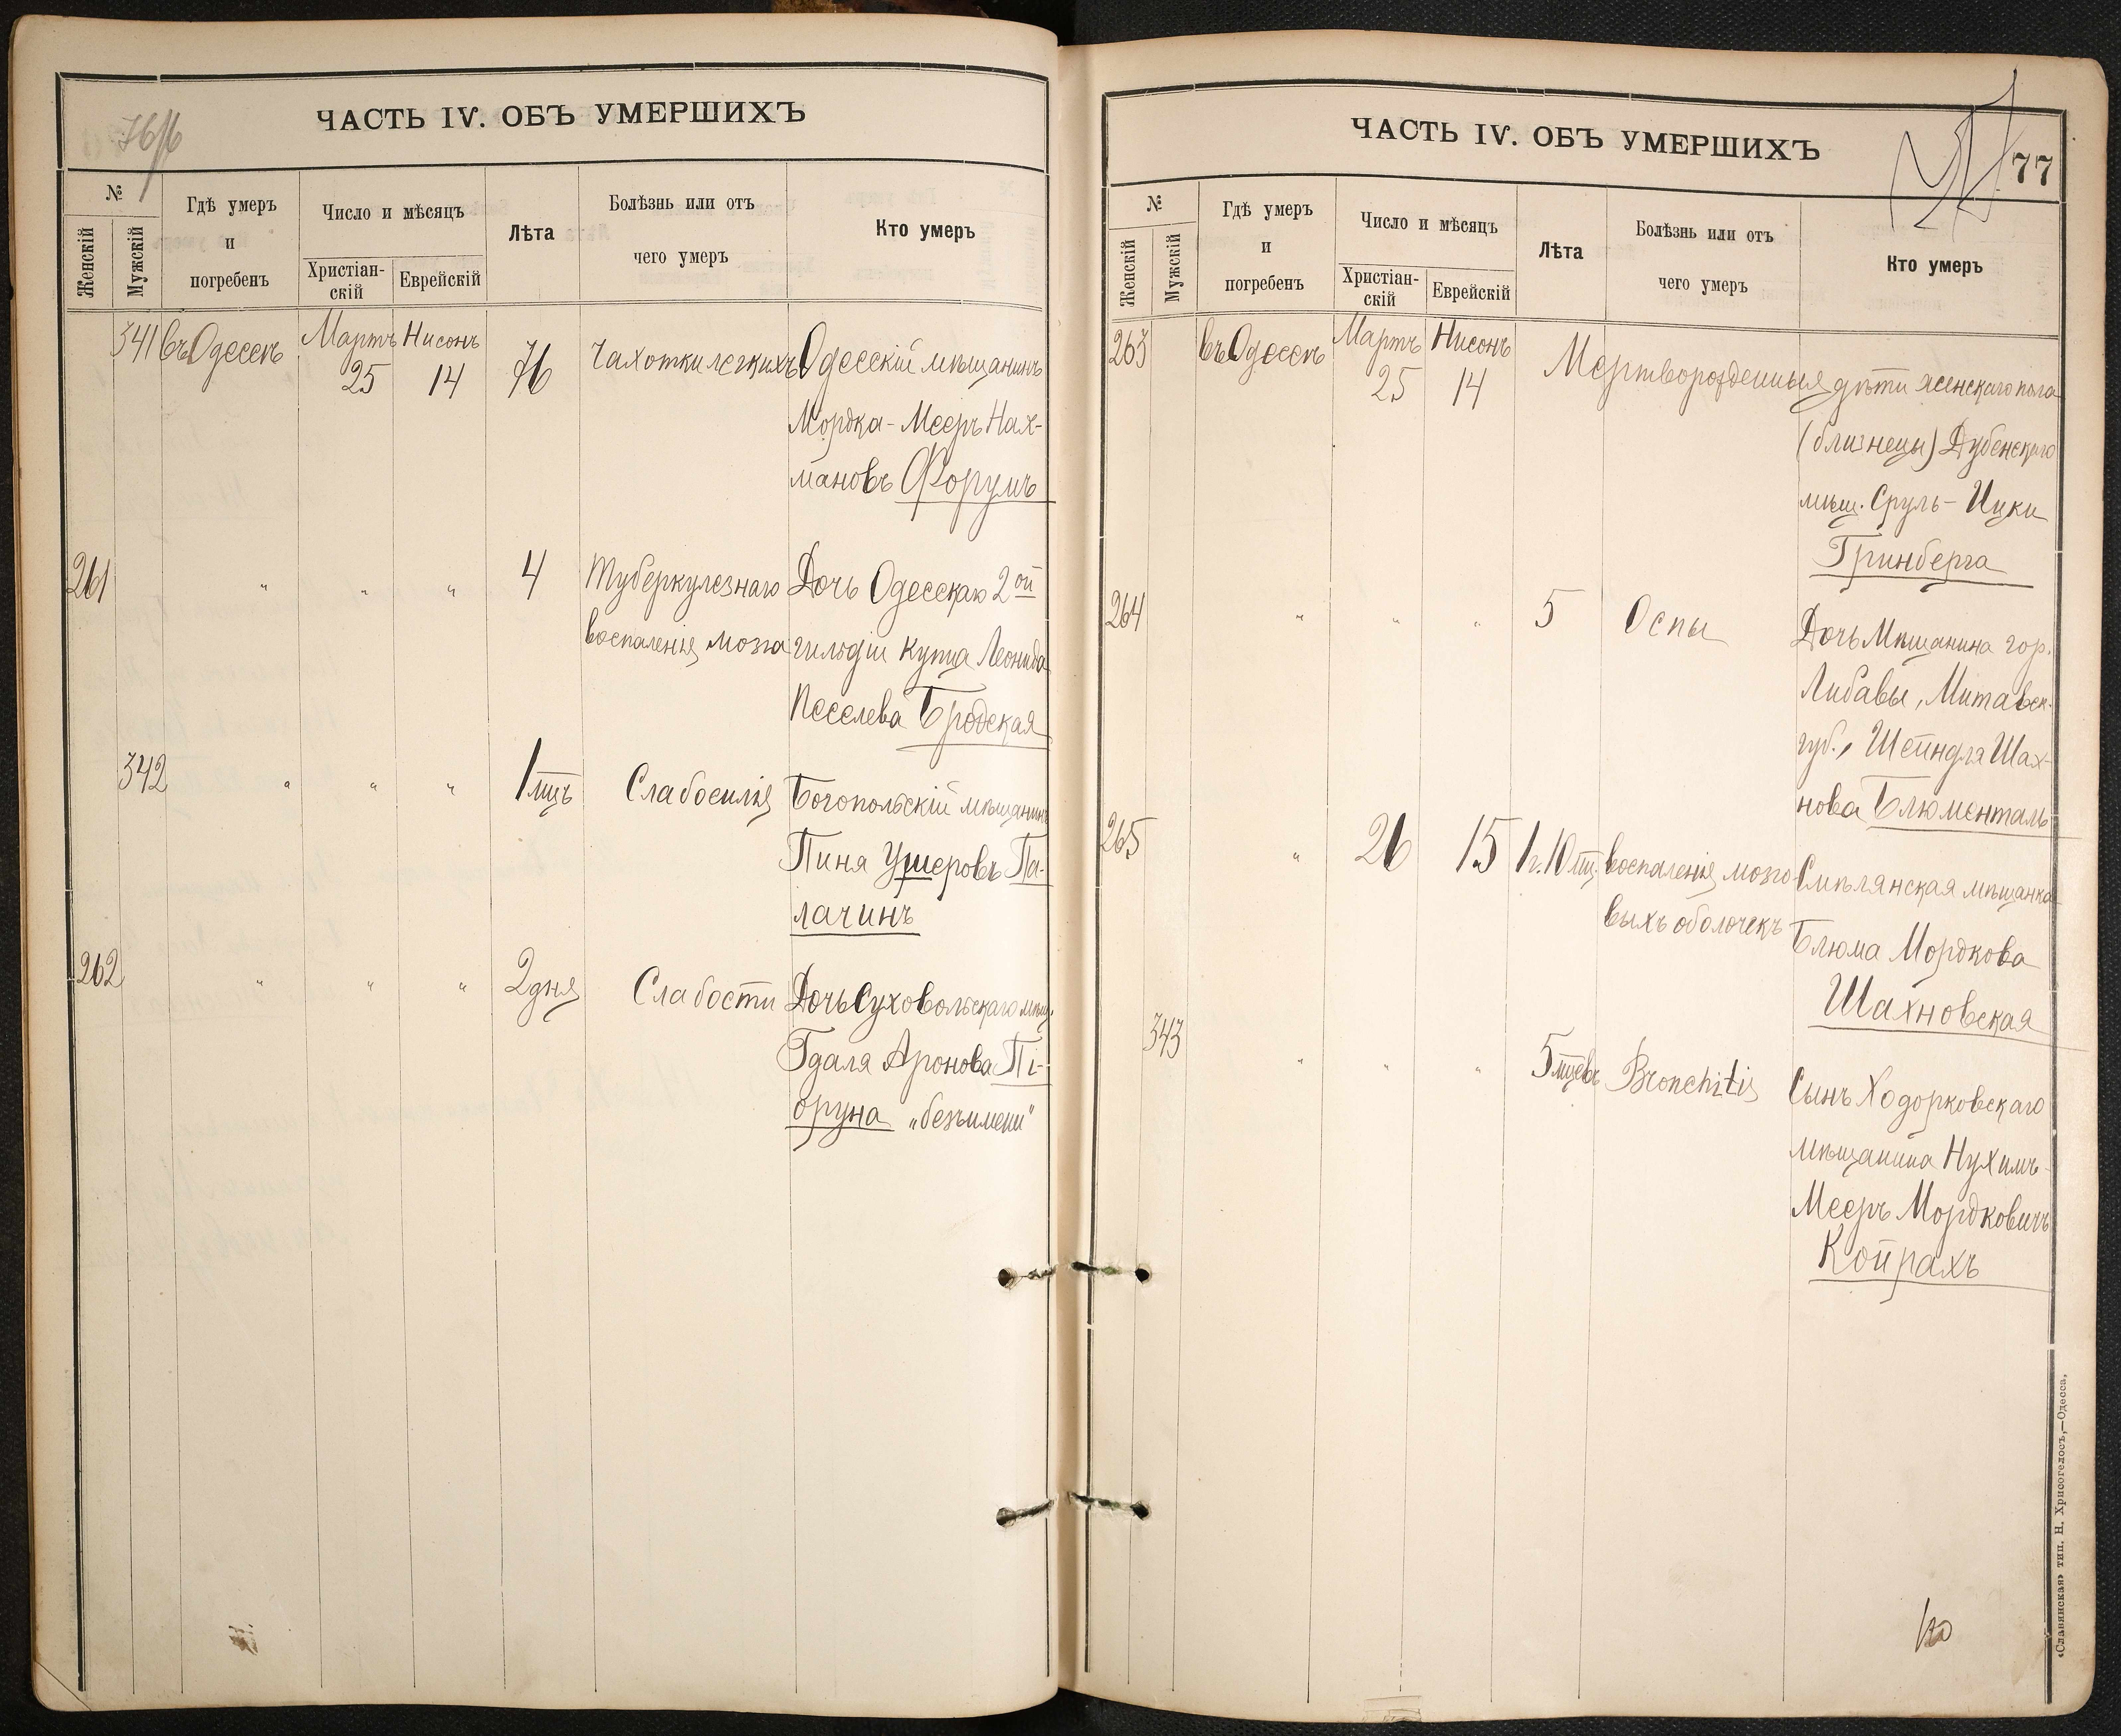 76
ЧАСТЬ IV. ОБЪ УМЕРШИХЪ
№
Женскій
Мужскій
Гдѣ умеръ
и
погребенъ
Число и мѣсяцъ
Христіан-
скій
Еврейскій
Лѣта
Болѣзнь или отъ
чего умеръ
Кто умеръ
341 въ Одессѣ Мартъ 25 Нисонъ 14 76 Чахотки легкихъ Одесскій мѣщанинъ
Мордка-Мееръ Нах-
мановъ Форумъ
261 " " " 4 Туберкулезнаго Дочь Одесскаго 2ой
воспаленія мозга гильдіи купца Леонида
Песелева Бродская
342 " " " 1 мцъ Слабосилія Богопольскій мѣщанинъ
Пиня Ушеровъ Па-
лачинъ
262 " " " 2 дня Слабости Дочь Суховольскаго мѣщ.
Гдаля Аронова Пі-
оруна „безъимени"
ЧАСТЬ IV. ОБЪ УМЕРШИХЪ
77
№
Женскій
Мужскій
Гдѣ умеръ
и
погребенъ
Число и мѣсяцъ
Христіан-
скій
Еврейскій
Лѣта
Болѣзнь или отъ
чего умеръ
Кто умеръ
263 въ Одессѣ Мартъ 25 Нисонъ 14 Мертворожденныя дѣти женскаго пола
(близнецы) Дубенскаго
мѣщ. Сруль-Ицки
Гринберга
264 " " " 5 Оспы Дочь Мѣщанина гор.
Либавы, Митавск.
губ., Шейндля Шах-
нова Блюменталь
265 " 26 15 1 г. 10 мц. воспаленія мозго- Смѣлянская мѣщанка
выхъ оболочекъ Блюма Мордкова
Шахновская
343 " " " 5 мцевъ Bronchitis Сынъ Ходорковскаго
мѣщанина Нухимъ-
Мееръ Мордковичъ
Койрахъ
«Славянская» тип. Н. Хрисогелосъ,—Одесса,